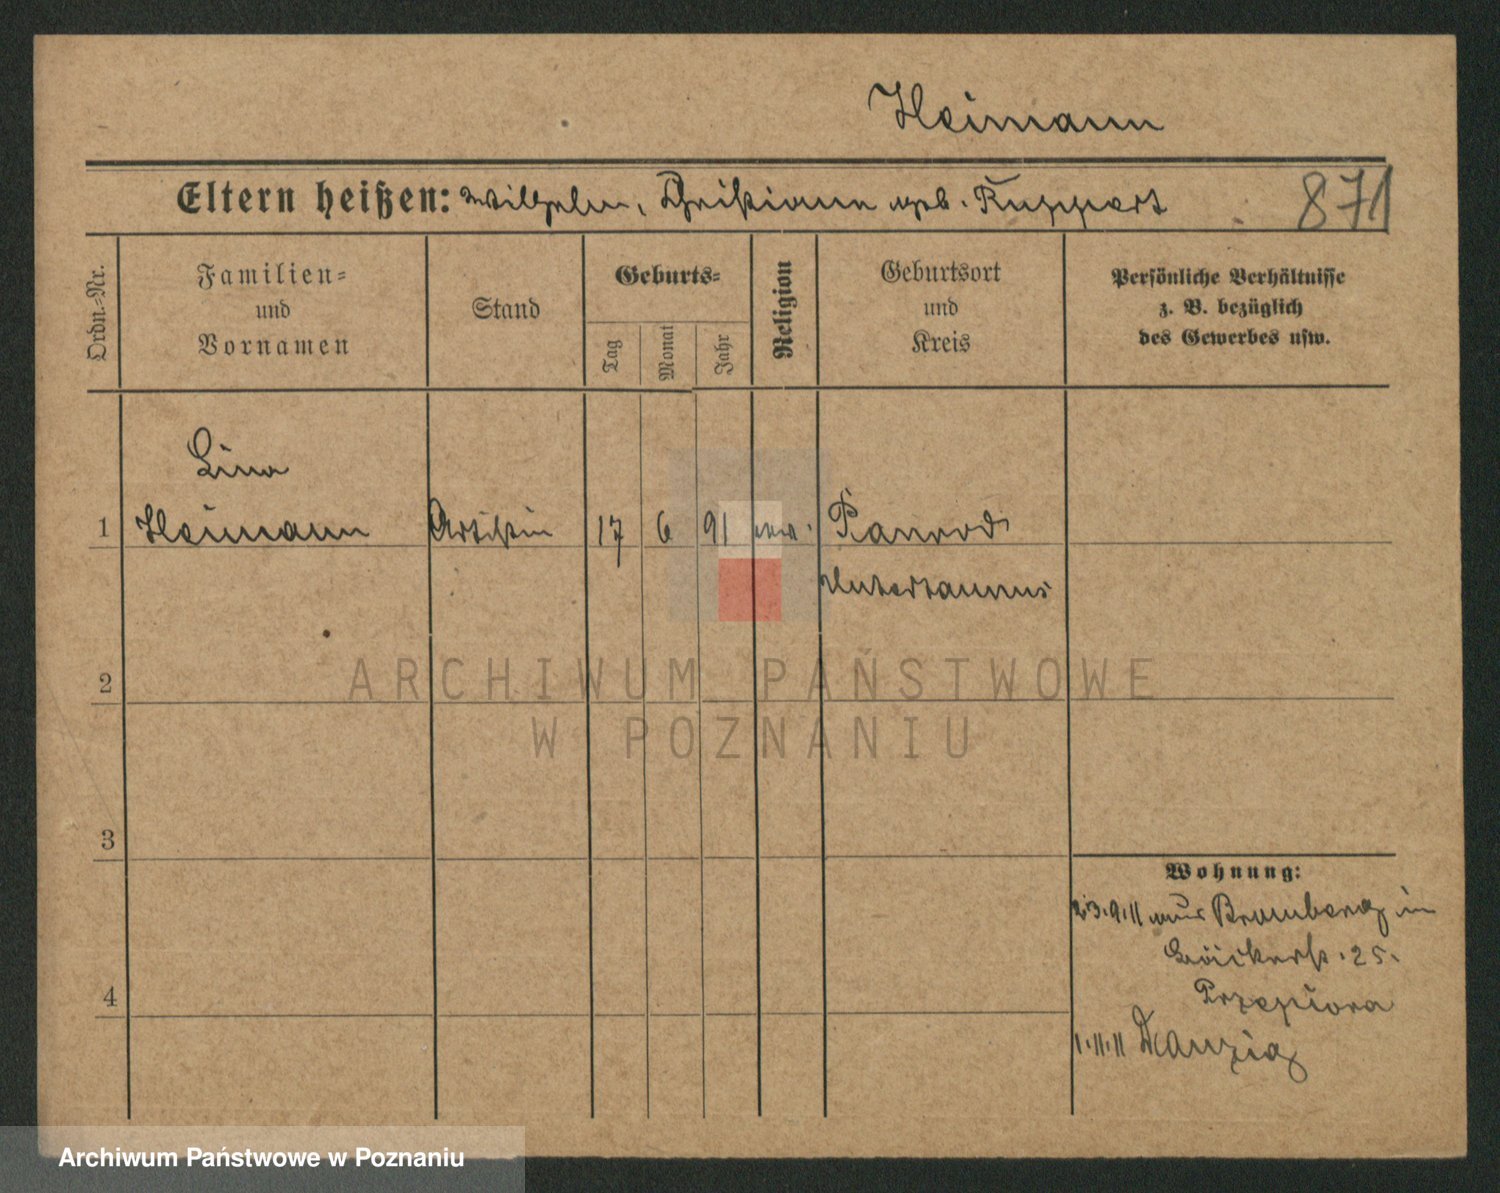 Heimann
Eltern heißen: Wilhelm, Christiane geb. Ruppert 871
Ordn.=Nr.
Familien=
und
Vornamen
Stand
Geburts=
Tag
Monat
Jahr
Religion
Geburtsort
und
Kreis
Persönliche Verhältnisse
z. B. bezüglich
des Gewerbes usw.
Lina
1 Heimann Artistin 17 6 91 Panrod
Untertaunus
2
ARCHIWUM PAŃSTWOWE
W POZNANIU
3
Wohnung:
23.9.11 aus Bromberg in
25.
Przepiora
4
1.11.11 Danzig
Archiwum Państwowe w Poznaniu